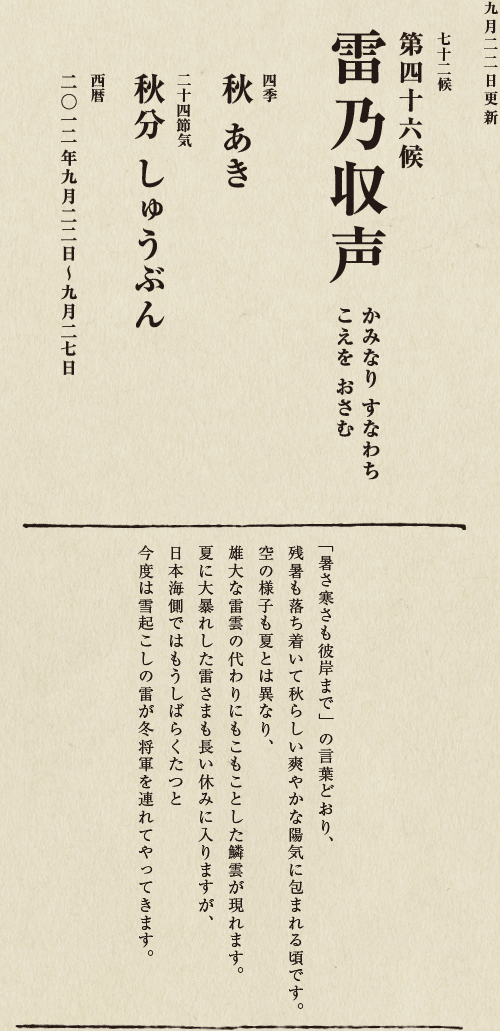 九月二二日更新
七十二候
第四十六候
雷乃収声
かみなり すなわち
こえを おさむ
四季
秋 あき
二十四節気
秋分 しゅうぶん
西暦
二〇一二年九月二二日〜九月二七日
「暑さ寒さも彼岸まで」の言葉どおり、
残暑も落ち着いて秋らしい爽やかな陽気に包まれる頃です。
空の様子も夏とは異なり、
雄大な雷雲の代わりにもこもことした鱗雲が現れます。
夏に大暴れした雷さまも長い休みに入りますが、
日本海側ではもうしばらくたつと
今度は雪起こしの雷が冬将軍を連れてやってきます。